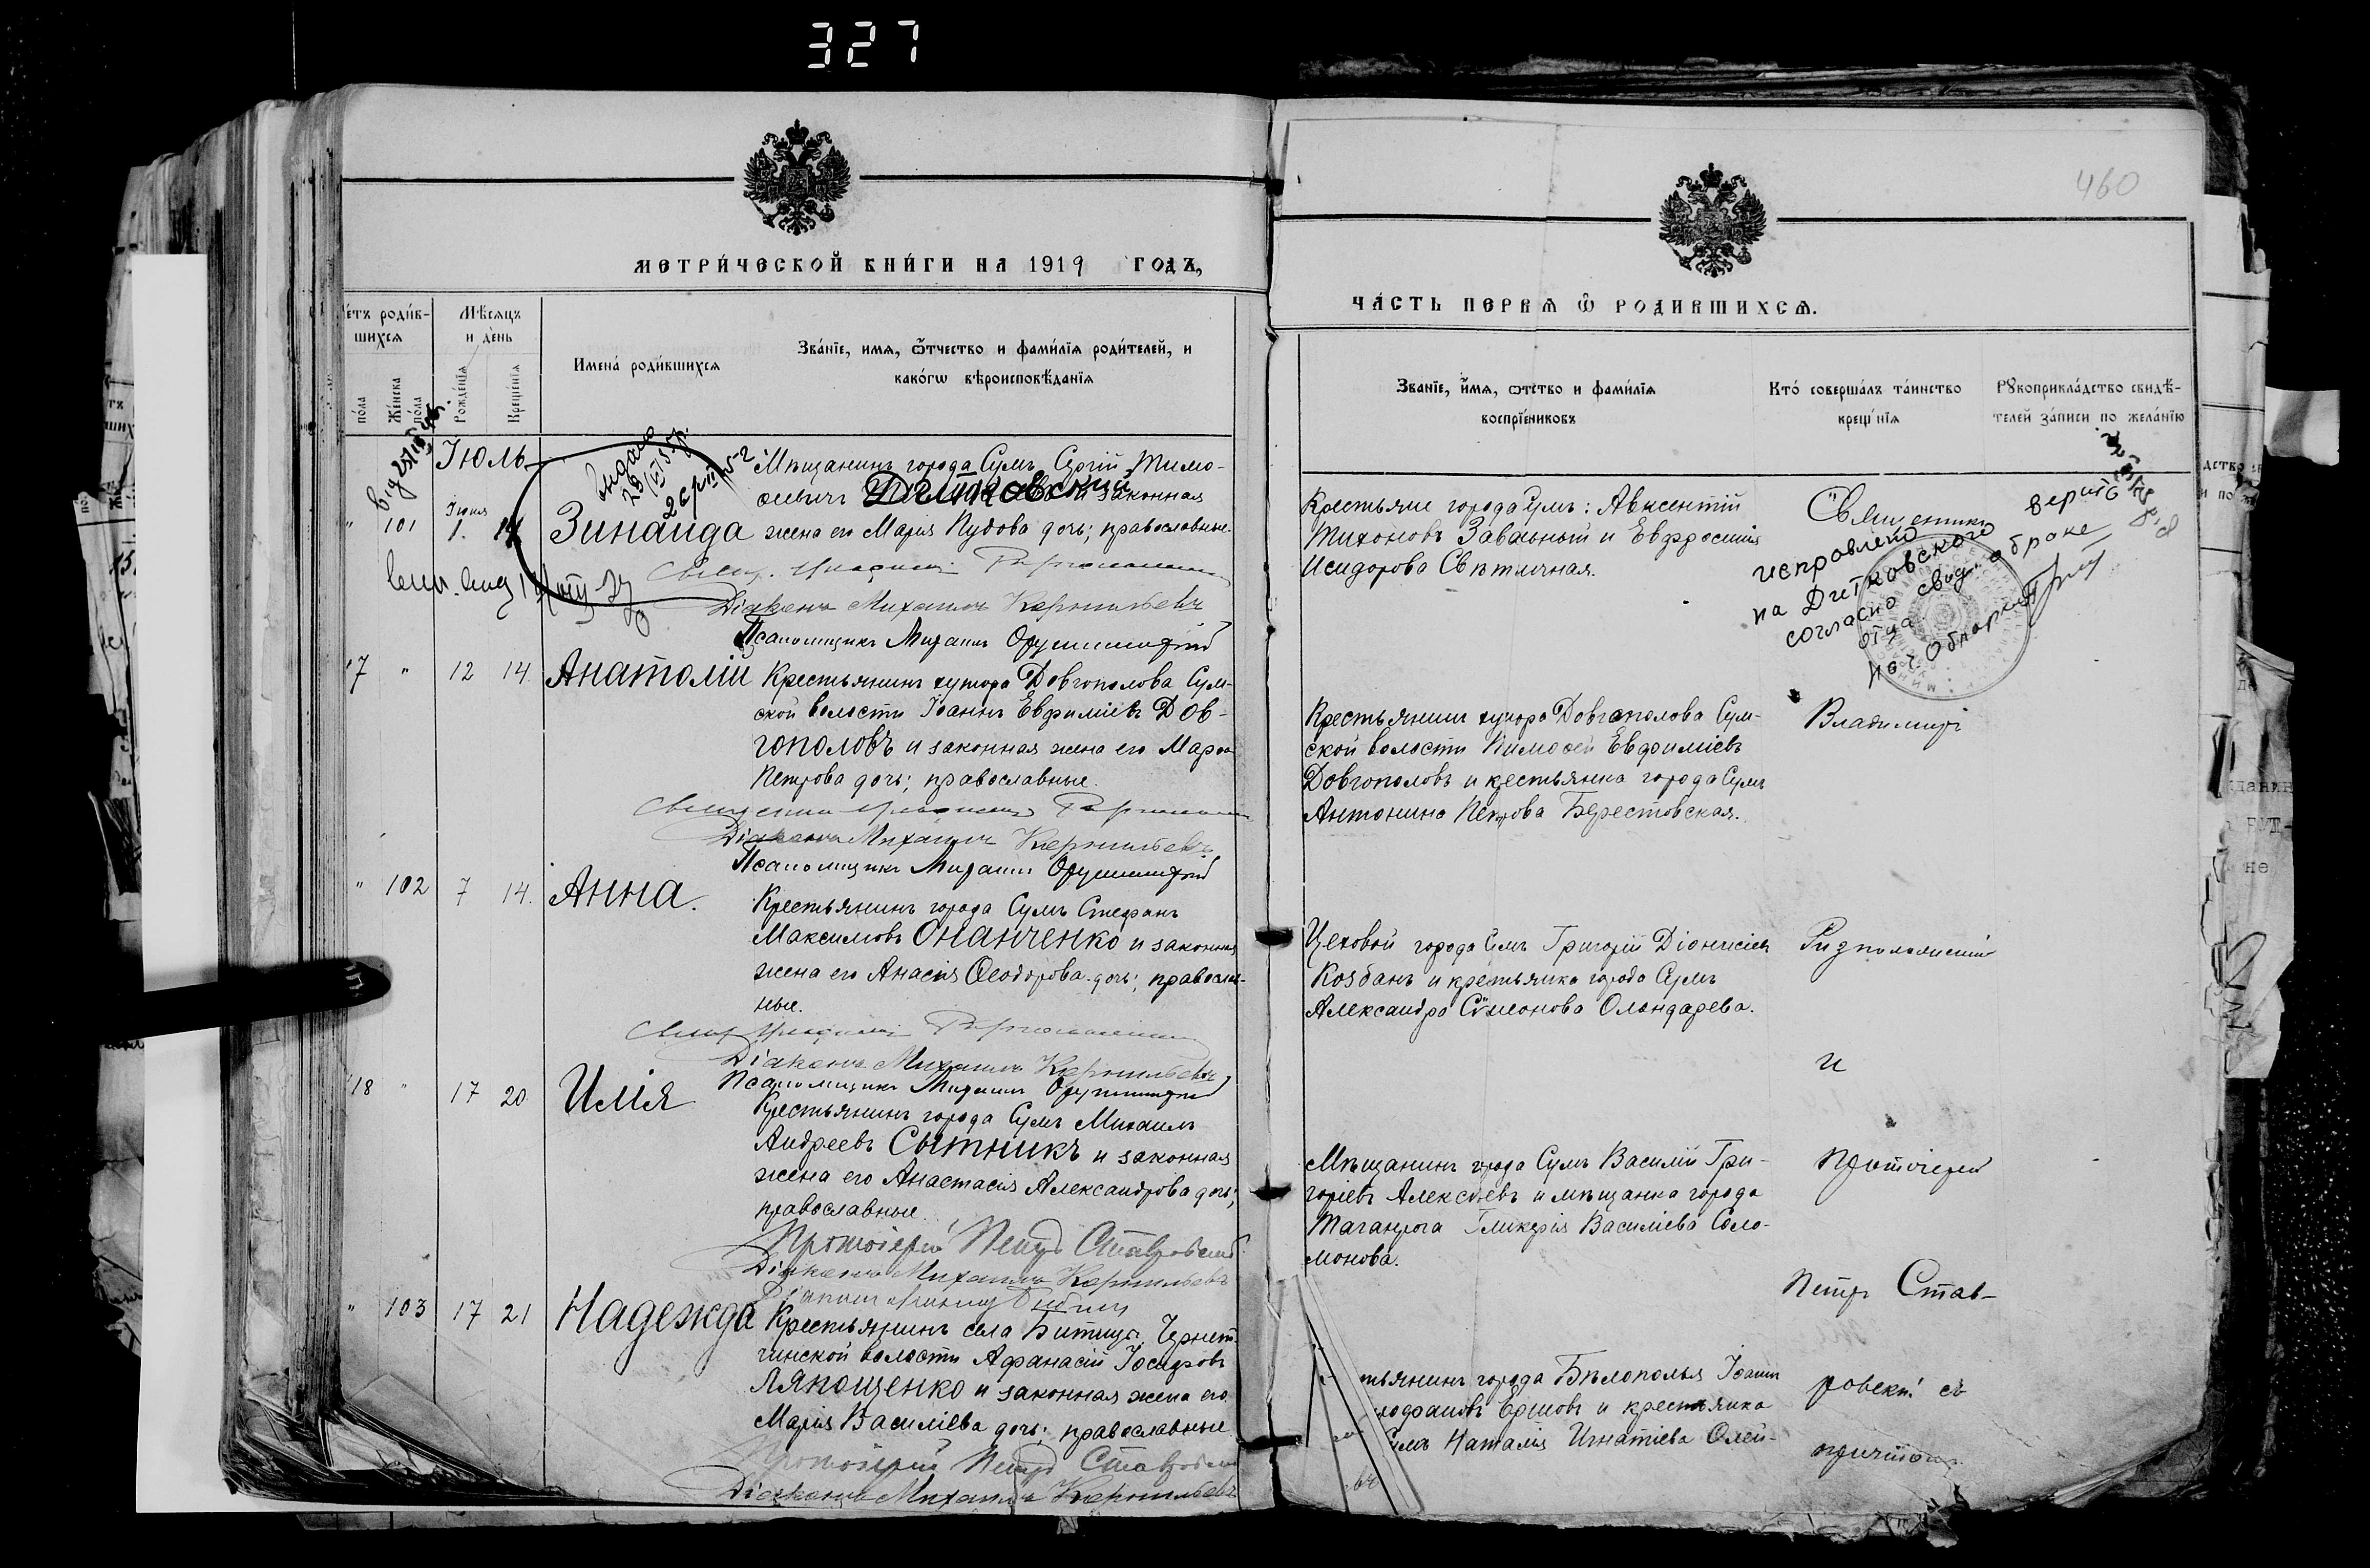 327
460
МЕТРИ́ЧЕСКОЙ КНИ́ГИ НА 1919 ГОДЪ,
ЧА́СТЬ ПЕРВАѦ Ѿ РОДИВШИХСѦ.
етъ роди́в-
шихсѧ
по́ла
Же́нска
по́ла
Мѣ́сѧцъ
и де́нь
Рожде́нїѧ
Креще́нїѧ
Имена́ роди́вшихсѧ
Зва́нїе, имѧ, ѿтчество и фами́лїѧ роди́телей, и
како́гѡ вѣроисповѣ́данїѧ
Званїе, и́мѧ, ѡтство и фами́лїѧ
воспрїе́мниковъ
Кто́ соверша́лъ та́инство
креще́нїѧ
Рꙋкоприкла́дство свидѣ́-
телей за́писи по жела́нїю
Іюль
" 101 Іюня 1. 14
Зинаида
Мѣщанинъ города Сумъ Сергій Тимо-
ѳеевичъ Дитковский и законная
жена его Марія Кудова дочь; православные.
Діаконъ Михаилъ Корнильевъ
Псаломщикъ Михаилъ
Крестьяне города Сумъ: Авксентій
Тихоновъ Завальный и Евфросинія
Исидорова Свѣтличная.
Священникъ
исправлено
на Дитковского
согласно свид. о браке
отца
верить
17 " 12 14.
Анатолій
Крестьянинъ хутора Довгополова Сум-
ской волости Іоаннъ Евфиміевъ Дов-
гополовъ и законная жена его Марѳа
Петрова дочь; православные.
Діаконъ Михаилъ Корнильевъ
Псаломщикъ Михаилъ
Крестьянинъ хутора Довгополова Сум-
ской волости Тимоѳей Евфиміевъ
Довгополовъ и крестьянка города Сумъ
Антонина Петрова Берестовская.
Владимиръ
" 102 7 14.
Анна.
Крестьянинъ города Сумъ Стефанъ
Максимовъ Онанченко и законная
жена его Анасія Ѳеодорова дочь; православ-
ные.
Діаконъ Михаилъ Корнильевъ
Псаломщикъ Михаилъ
Цеховой города Сумъ Григорій Діонисіевъ
Козбанъ и крестьянка города Сумъ
Александра Симеонова Олондарева.
и
18 " 17 20
Илія
Крестьянинъ города Сумъ Михаилъ
Андреевъ Сытникъ и законная
жена его Анастасія Александрова дочь;
православные.
Протоіерей Петръ Ставровскій
Діаконъ Михаилъ Корнильевъ
Мѣщанинъ города Сумъ Василій Гри-
горіевъ Алексѣевъ и мѣщанка города
Таганрога Гликерія Василіева Соло-
монова.
Протоіерей
Петръ Став-
" 103 17 21
Надежда
Крестьянинъ села Битицы Чернет-
чинской волости Афанасій Іосифовъ
Ляпощенко и законная жена его
Марія Василіева дочь; православные
Протоіерей Петръ Ставровскій
Діаконъ Михаилъ Корнильевъ
тьянинъ города Бѣлополья Іоаннъ
Ершовъ и крестьянка
Сумъ Наталія Игнатіева Олей-
ровскій съ
причтомъ